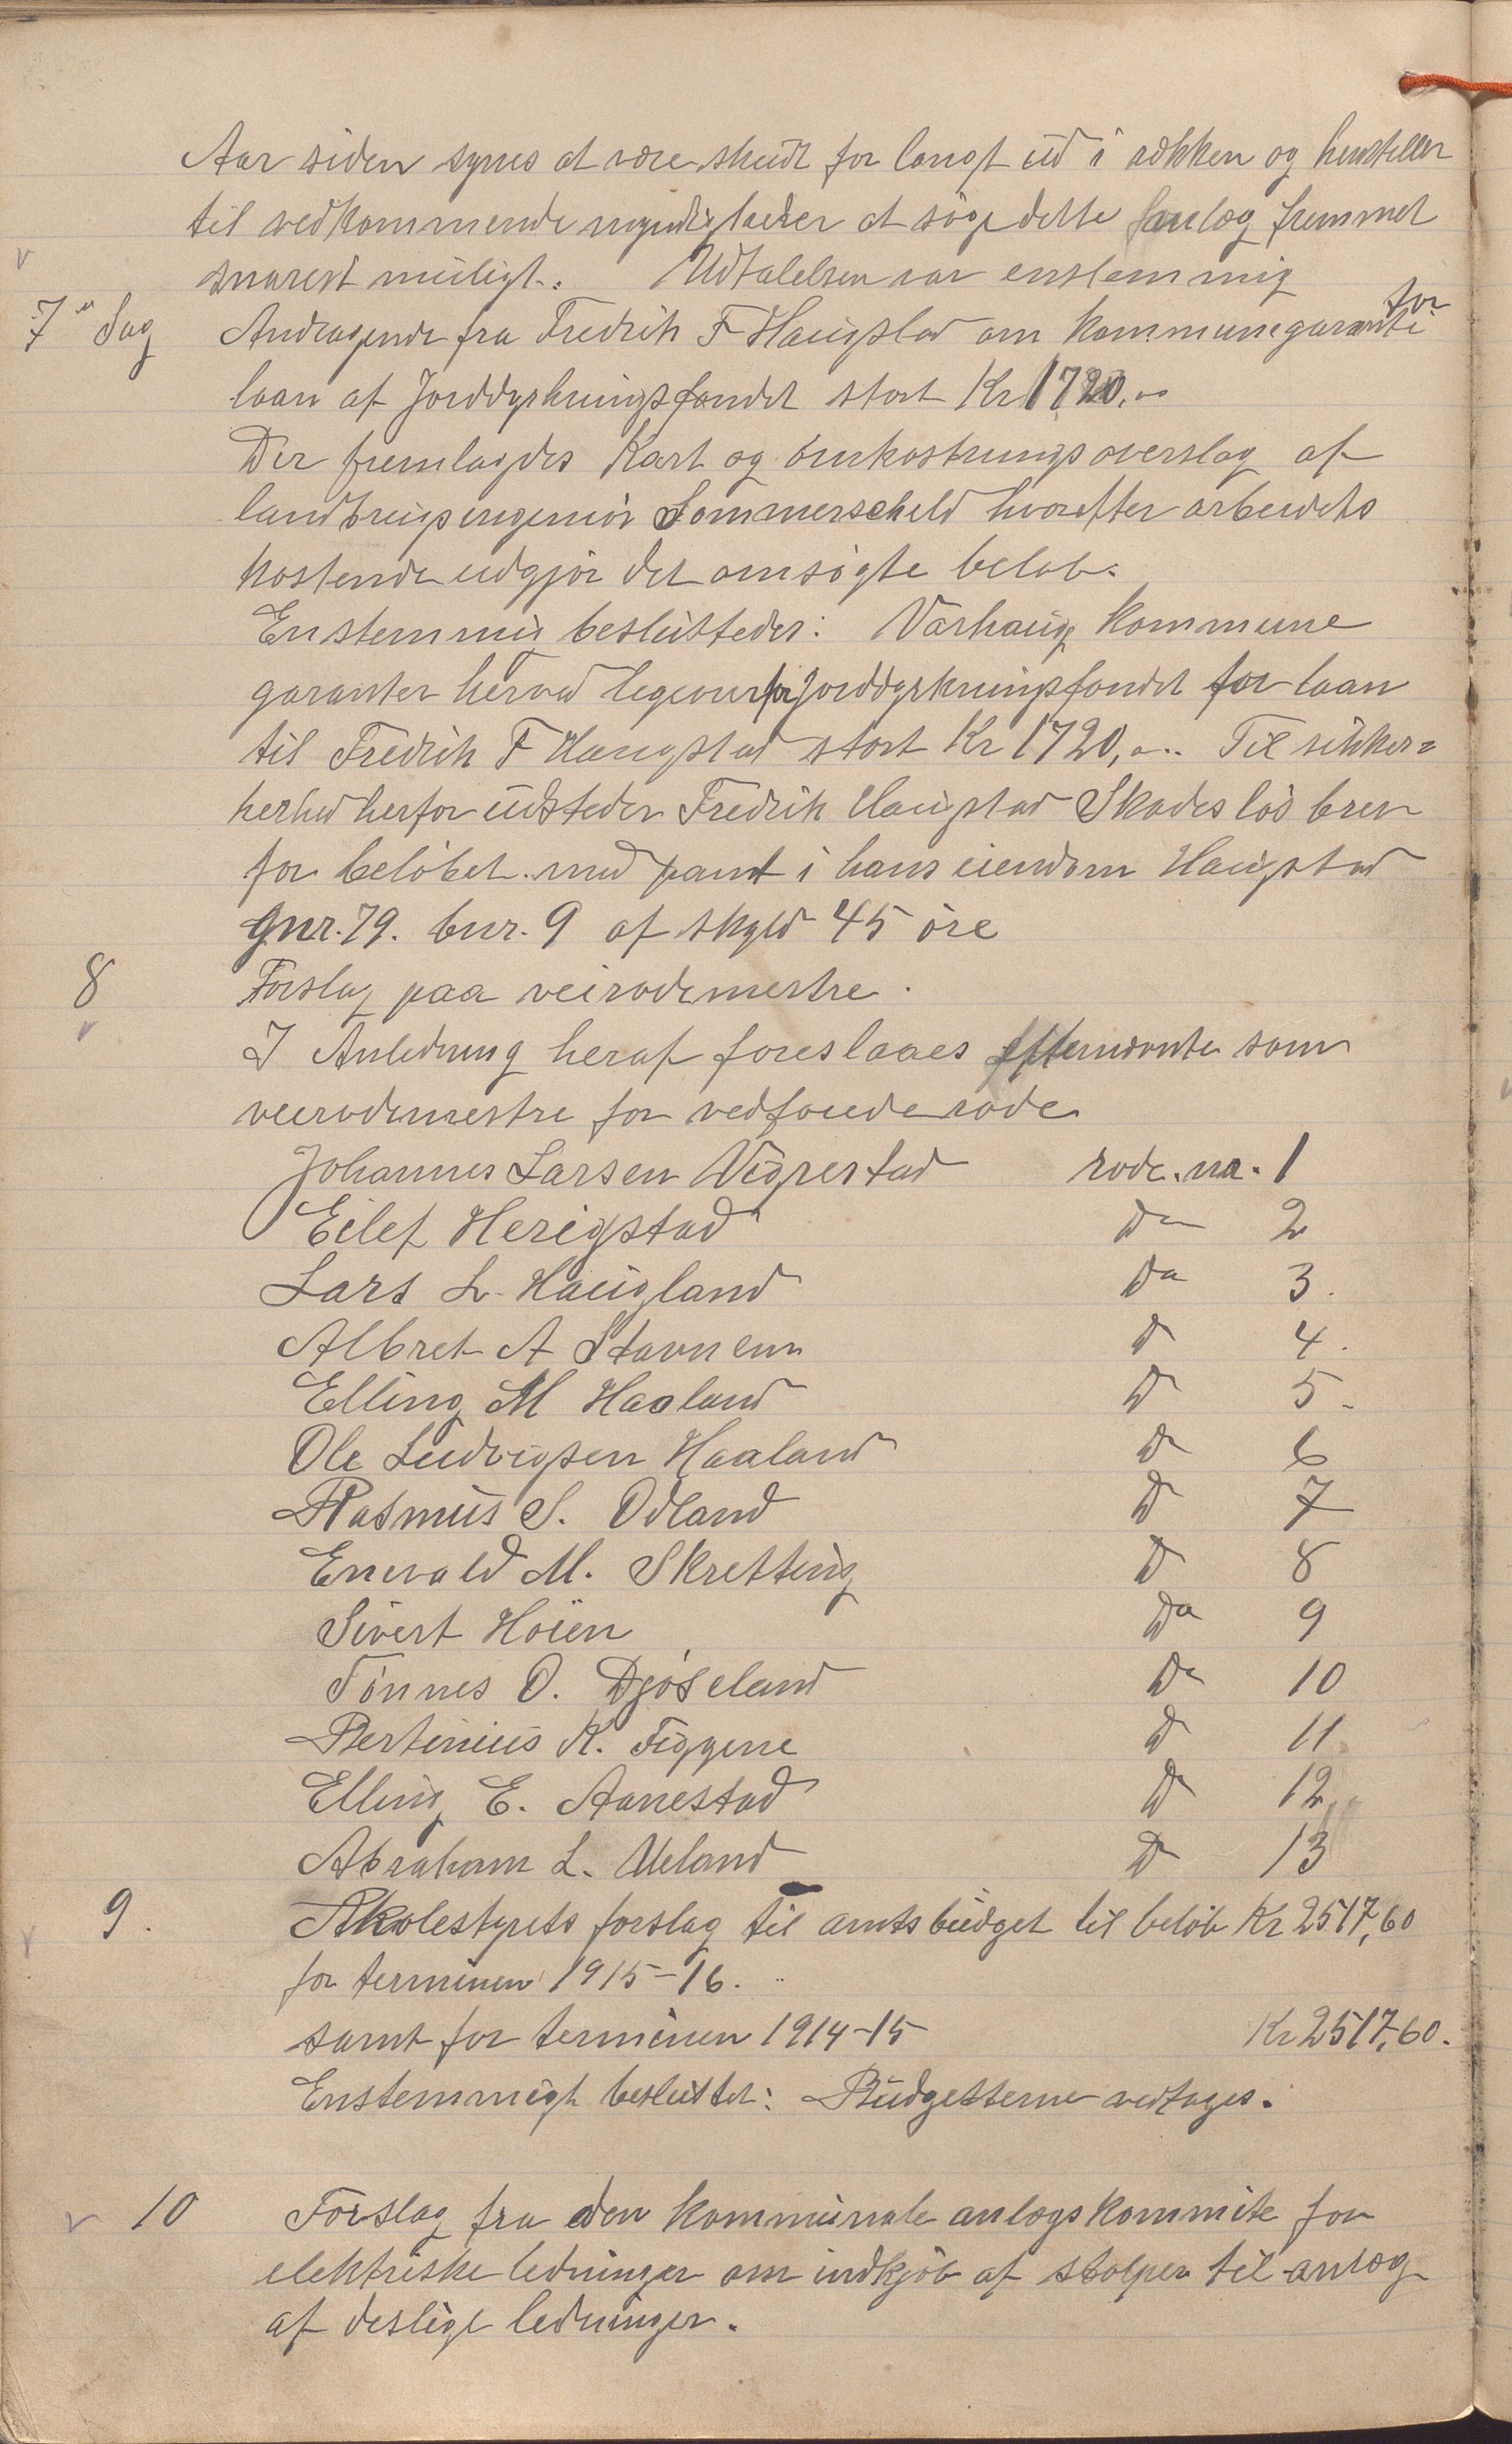 Aar siden synes at være skudt for langt ud i rækken og henstiller
til vedkommende myndigheder at søge dette anlæg fremmet
snarest muligt. Udtalelsen var enstemmig
7de Sag Andragende fra Fredrik F Haugstad om Kommunegaranti for
laan af Jorddyrkningsfondet stort Kr 1720,00
Der fremlagdes Kart og omkostningsoverslag af
landbrugsingeniør Sommerscheld hvorefter arbeidets
kostende udgjør det omsøgte beløb.
Enstemmig besluttedes: Varhaug Kommune
garanter herved ligeoverfor Jorddyrkningsfondet for laan
til Fredrik F Haugstad stort Kr 1720,00. Til sikker=
herhed herfor udsteder Fredrik Haugstad Skadesløsbrev
for beløbet med pant i hans eiendom Haugstad
Gnr. 79. bnr. 9 af skyld 45 øre
8 Forslag paa veirodemestre.
I Anledning heraf foreslaaes efternævnte som
veirodemestre for vedføiede rode
Johannes Larsen Vigrestad rode nr. 1
Eilef Herigstad Do 2
Lars L. Haugland Do 3.
Albret A Stavnem Do 4.
Elling M Haaland Do 5.
Ole Ludvigsen Haaland Do 6
Rasmus S. Odland Do 7
Enevald M. Skretting Do 8
Sivert Høien Do 9
Tønnes O. Djøseland Do 10
Bertinius K. Fuggene Do 11
Elling E. Aanestad Do 12
Abraham L. Ueland Do 13
9. Skolestyrets forslag til amtsbudget til beløb Kr 2517,60
for terminen 1915-16.
samt for terminen 1914-15 Kr 2517,60.
Enstemmigt besluttet: Budgetterne vedtages.
10 Forslag fra den kommunale anlægskommite for
elektriske ledninger om indkjøb af stolper til anlæg
af deslige ledninger.